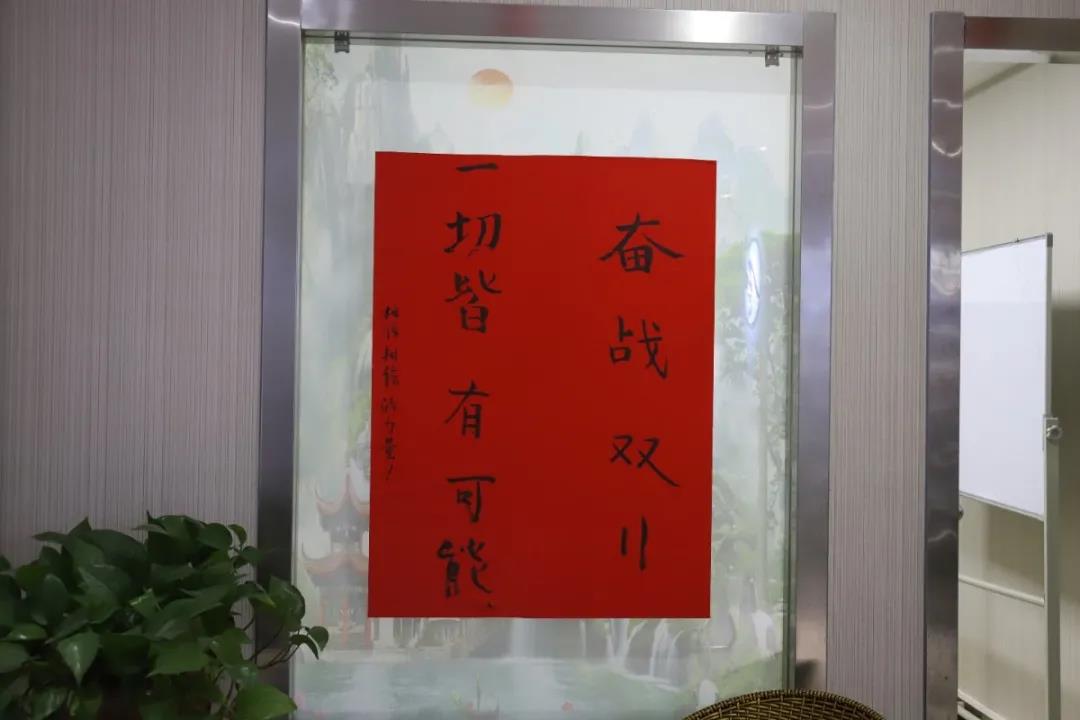 奋战双11
一切皆有可能
相信相信的力量！